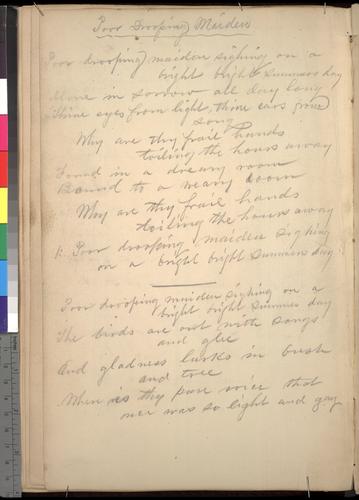 Poor Drooping Maiden
Poor drooping maiden sighing on a
bright bright summers day
Alone in sorrow all day long
Thine eyes from light, thine ears from
song
Why are thy frail hands
toiling the hours away
Found in a dreary room
Bound to a weary loom
Why are thy frail hands
toiling the hours away
Poor drooping maiden sighing
on a bright bright summers day.
Poor drooping maiden sighing on a
bright bright summer day
The birds are out with songs
and glee
And gladness lurks in bush
and tree
When is thy pure voice that
once was so light and gay